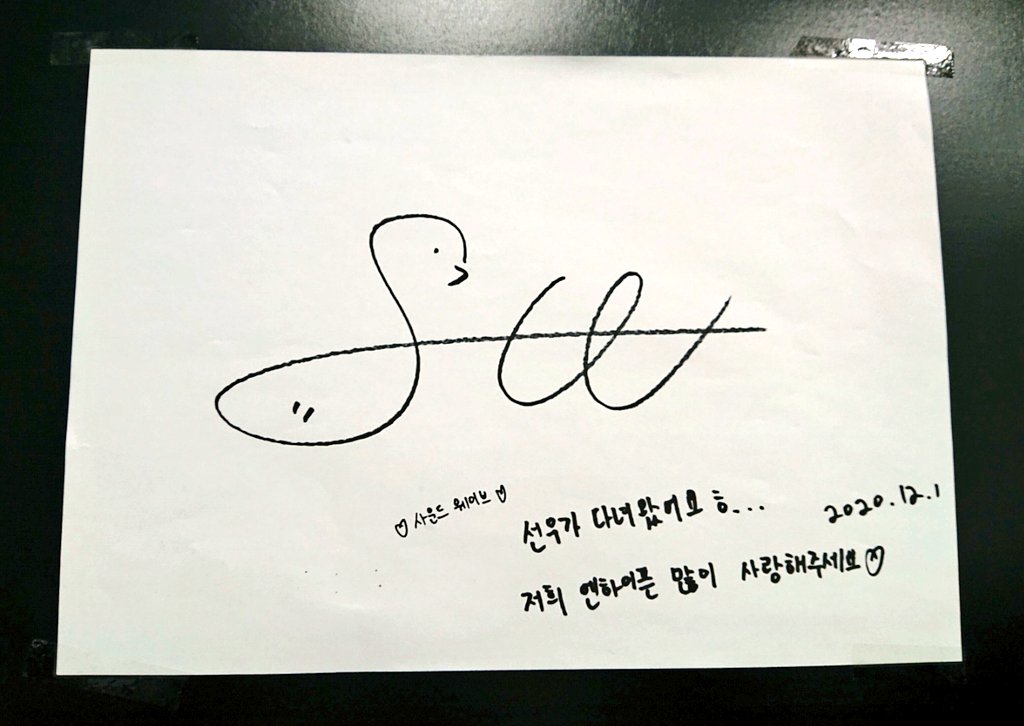 SW
♡ 사운드 웨이브 ♡
선우가 다녀왔어요 ㅎ... 2020.12.1
저희 엔하이픈 많이 사랑해주세요♡